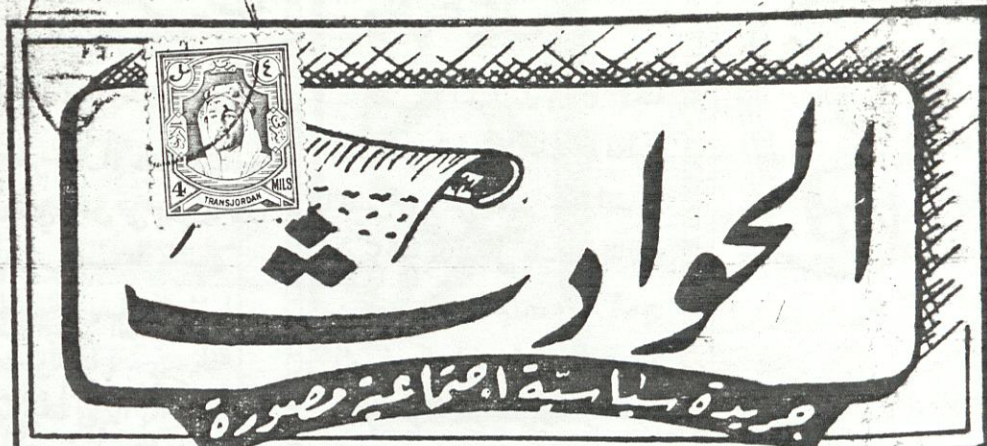 ٤
4 MILS
TRANSJORDAN
الحوادث
جريدة سياسية اجتماعية مصورة